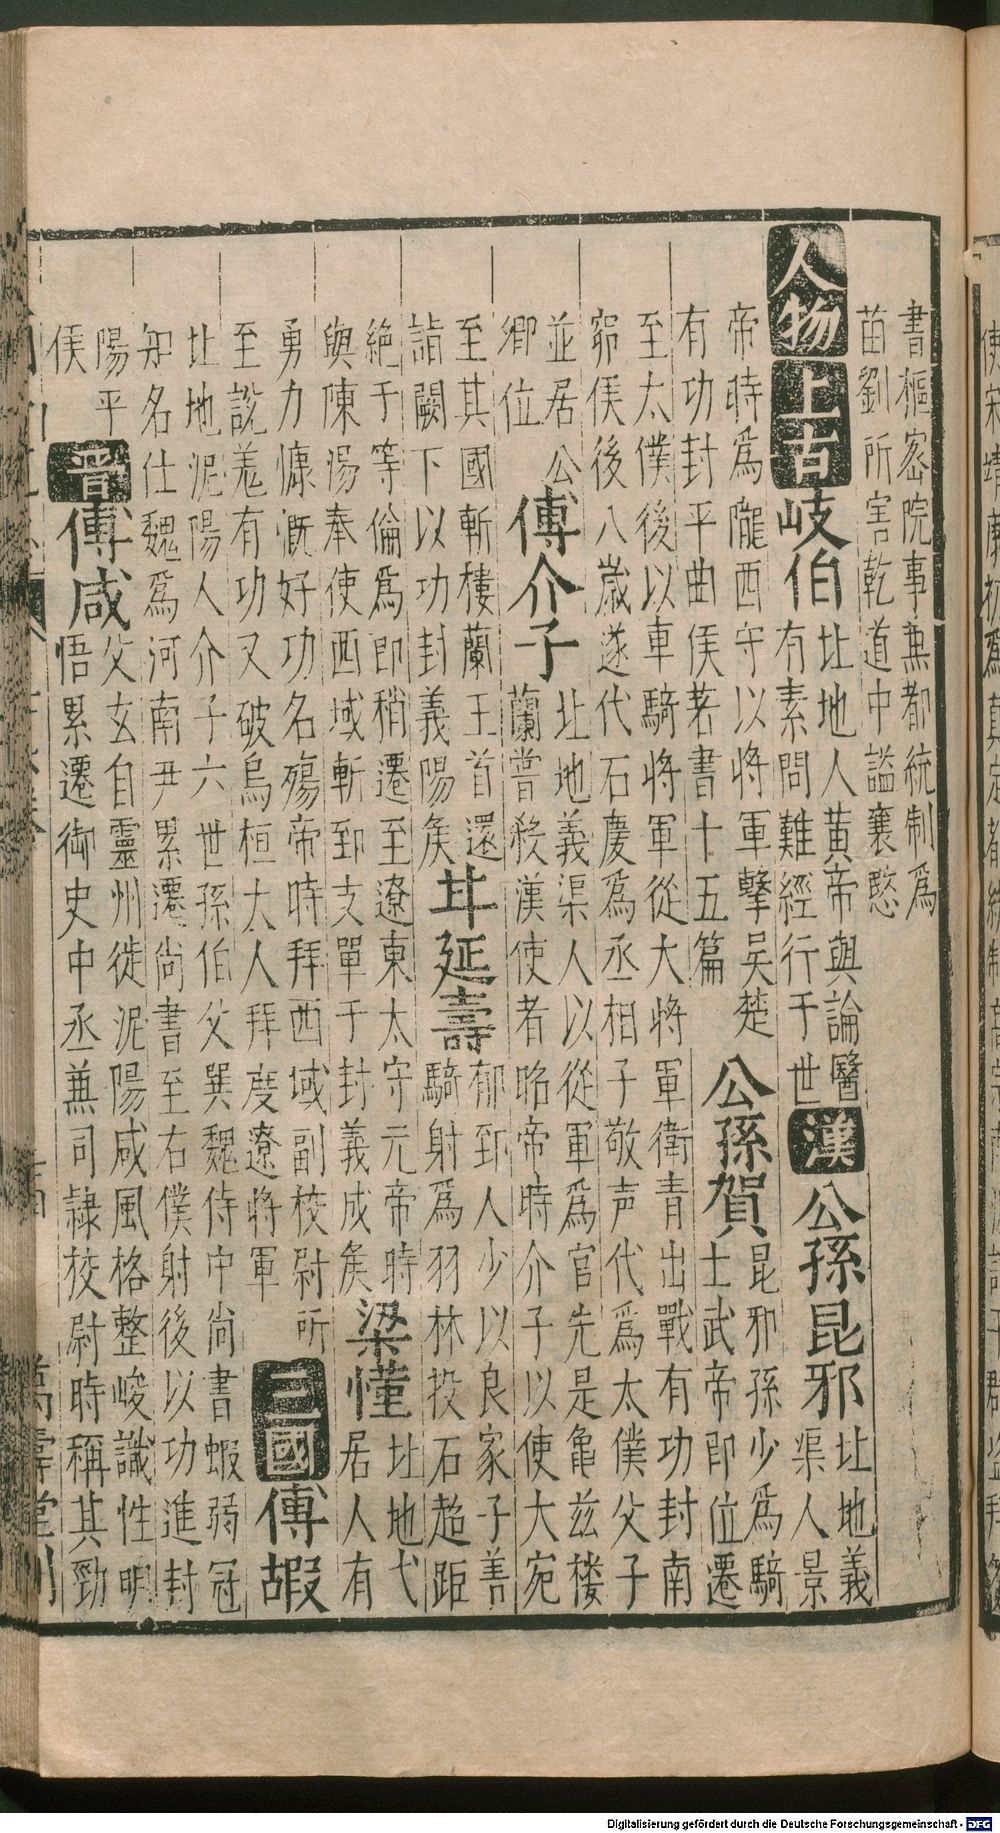 書樞密院事兼都統制為
苗劉所害乾道中謚襄愍
人物上古岐伯
北地人黃帝與論醫
有素問難經行于世
漢公孫昆邪
北地義
渠人景
帝時為隴西守以將軍擊吳楚
有功封平曲侯著書十五篇
公孫賀
昆邪孫少為騎
士武帝即位遷
至太僕後以車騎將軍從大將軍衛青出戰有功封南
窌侯後八歲遂代石慶為丞相子敬声代為太僕父子
並居公
卿位
傅介子
北地義渠人以從軍為官先是龜茲楼
蘭嘗殺漢使者昭帝時介子以使大宛
至其國斬樓蘭王首還
詣闕下以功封義陽侯
甘延壽
郁郅人少以良家子善
騎射為羽林投石超距
絶于等倫為郎稍遷至遼東太守元帝時
與陳湯奉使西域斬郅支單于封義成侯
梁慬
北地弋
居人有
勇力慷慨好功名殤帝時拜西域副校尉所
至說羌有功又破烏桓大人拜度遼將軍
三國傅嘏
北地泥陽人介子六世孫伯父巽魏侍中尚書嘏弱冠
知名仕魏為河南尹累遷尚書至右僕射後以功進封
陽平
侯
晋傅咸
父玄自靈州徙泥陽咸風格整峻識性明
悟累遷御史中丞兼司隷校尉時稱其勁
萬壽堂刊
Digitalisierung gefördert durch die Deutsche Forschungsgemeinschaft - DFG